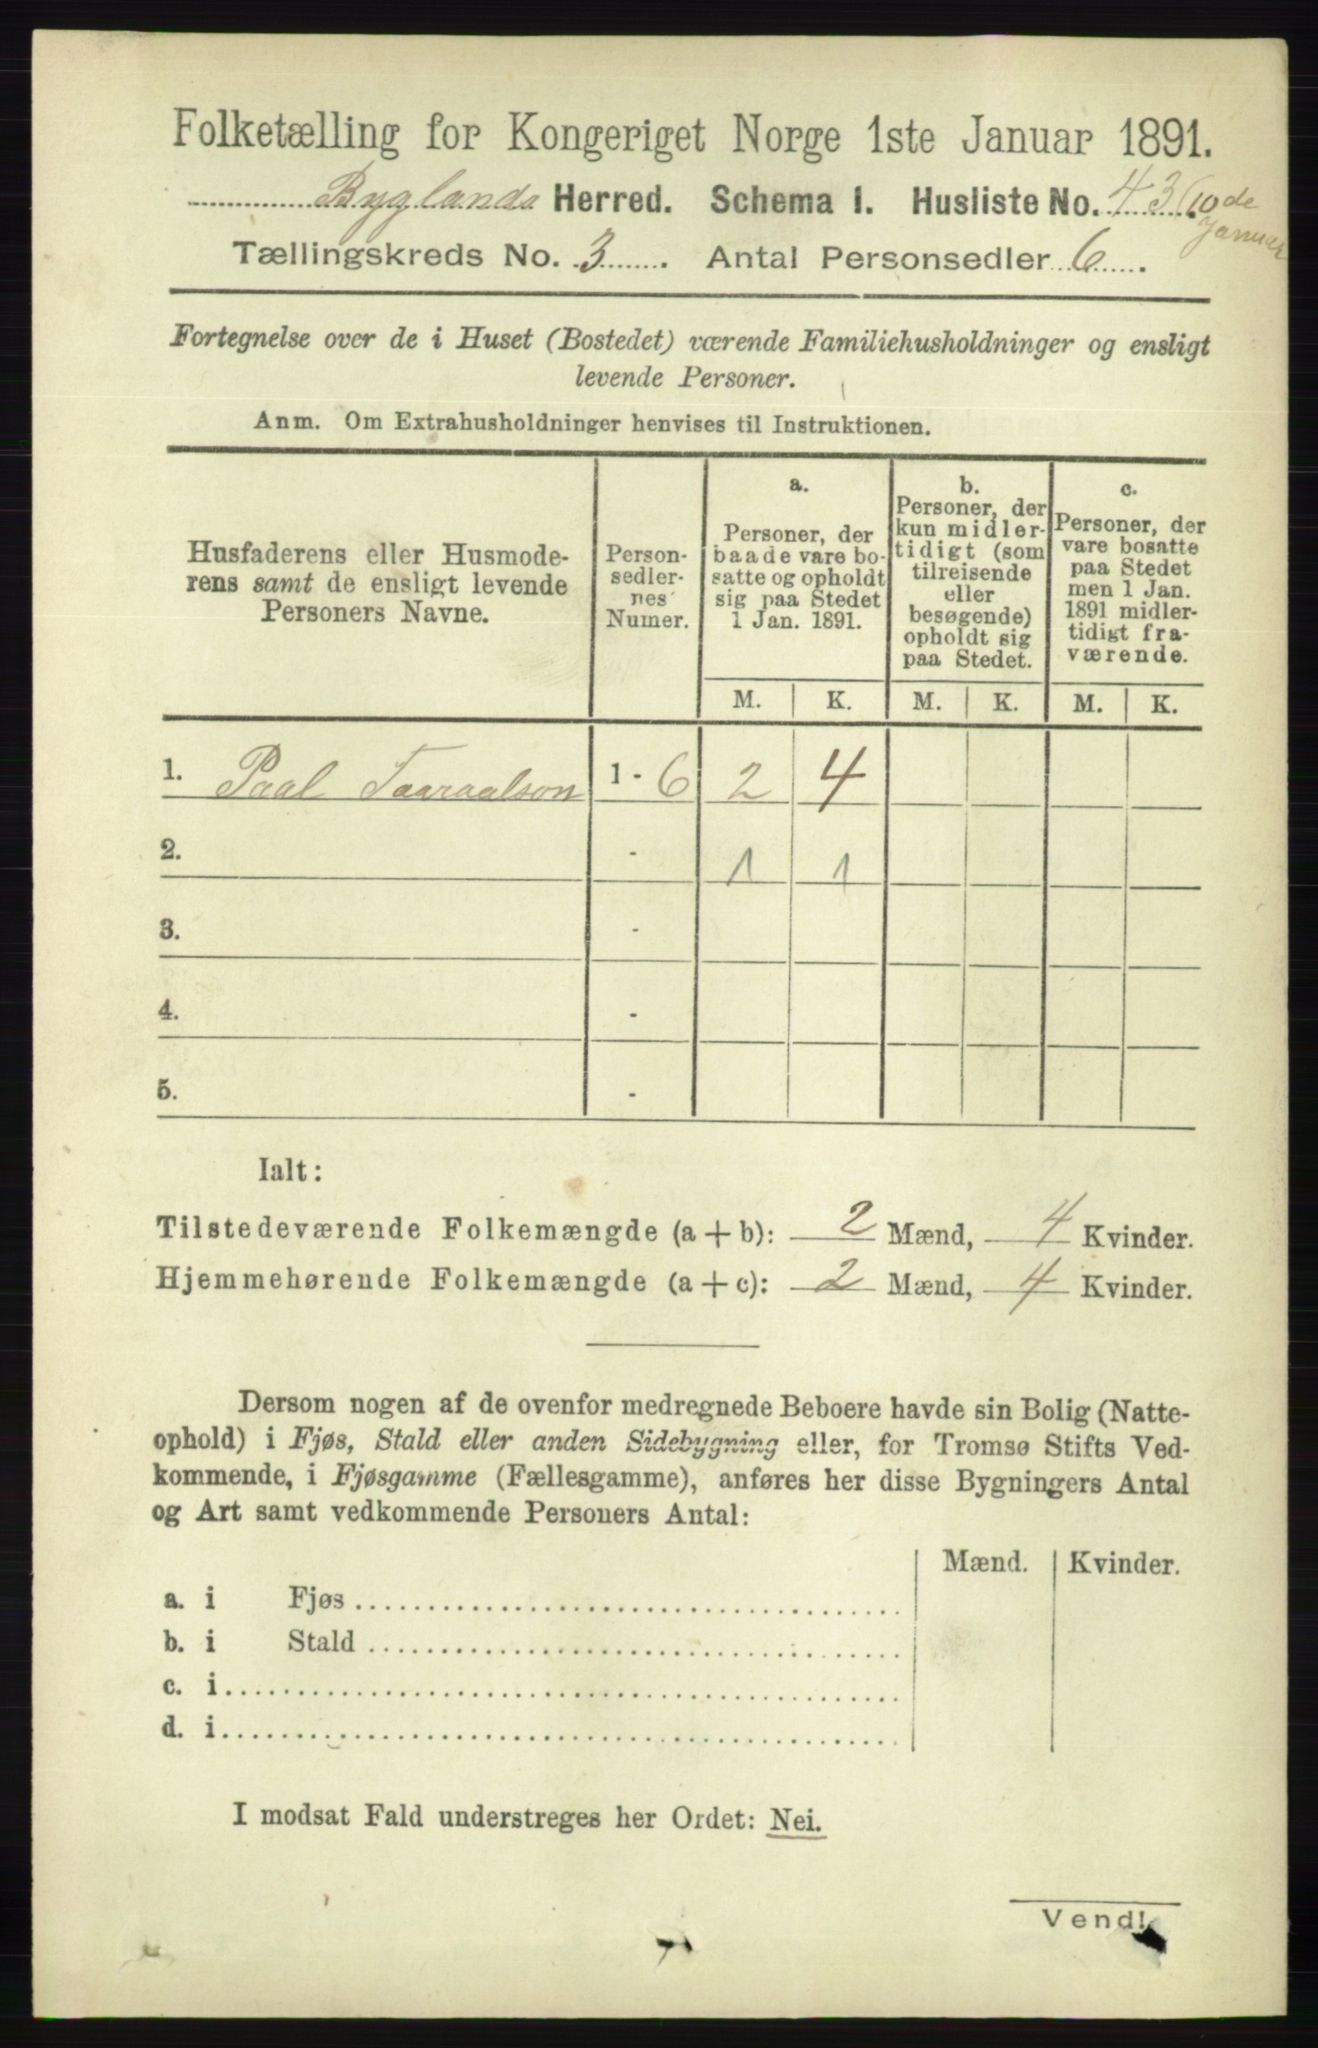 Folketælling for Kongeriget Norge 1ste Januar 1891.
Byglands Herred. Schema I. Husliste No. 43 (10de Januar
Tællingskreds No. 3. Antal Personsedler 6.
Fortegnelse over de i Huset (Bostedet) værende Familiehusholdninger og ensligt
levende Personer.
Anm. Om Extrahusholdninger henvises til Instruktionen.
Husfaderens eller Husmode-
rens samt de ensligt levende
Personers Navne.
Person-
sedler-
nes
Numer.
a.
Personer, der
baade vare bo-
satte og opholdt
sig paa Stedet
1 Jan. 1891.
b.
Personer, der
kun midler-
tidigt (som
tilreisende
eller
besøgende)
opholdt sig
paa Stedet.
c.
Personer, der
vare bosatte
paa Stedet
men 1 Jan.
1891 midler-
tidigt fra-
værende.
M. K. M. K. M. K.
1. Paal Taaraalson 1 - 6 2 4
2. - 1 1
3. -
4. -
5. -
Ialt:
Tilstedeværende Folkemængde (a + b): 2 Mænd, 4 Kvinder.
Hjemmehørende Folkemængde (a + c): 2 Mænd, 4 Kvinder.
Dersom nogen af de ovenfor medregnede Beboere havde sin Bolig (Natte-
ophold) i Fjøs, Stald eller anden Sidebygning eller, for Tromsø Stifts Ved-
kommende, i Fjøsgamme (Fællesgamme), anføres her disse Bygningers Antal
og Art samt vedkommende Personers Antal:
Mænd. Kvinder.
a. i Fjøs
b. i Stald
c. i
d. i
I modsat Fald understreges her Ordet: Nei.
Vend!